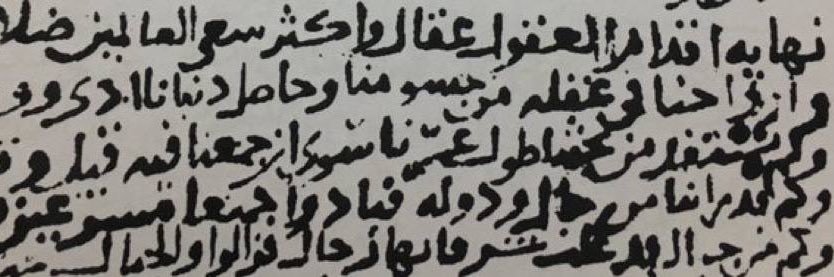 نهايه اقدام العقول عقال واكثر سعى العالمين ضلا
وارواحنا فى غفله من جسومنا وحاصل دنيانا اذى وو
ولم نستفد من بحثنا طول عمرنا سوى ان جمعنا فيه قيل وق
وكم قد راينا من رجال ودوله فبادوا جميعا مسرعين
وكم من جبال قد علت شرفاتها رجال فزالوا والجبال